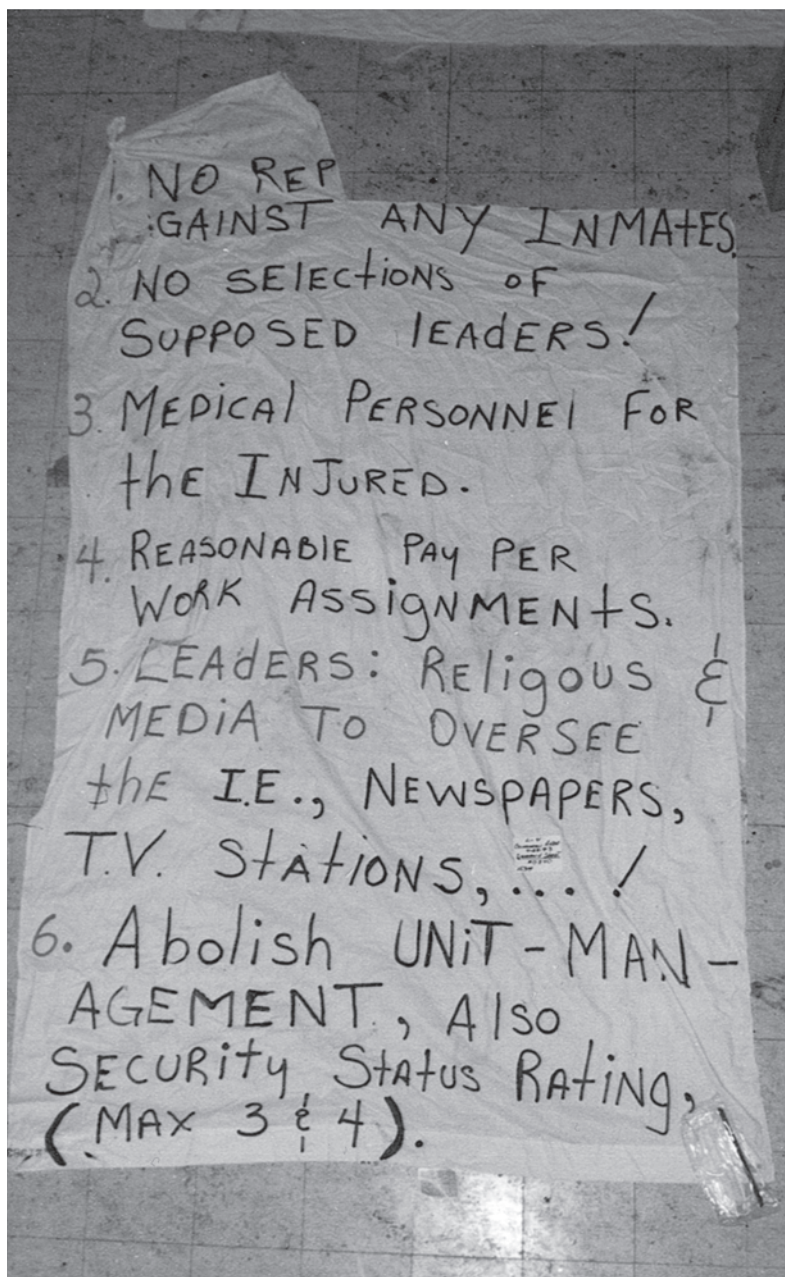 1. NO REP
GAINST ANY INMATES.
2. NO SELECTIONS OF
SUPPOSED LEADERS!
3. MEDICAL PERSONNEL FOR
the INJURED.
4. REASONABLE PAY PER
WORK ASSIGNMENTS.
5. LEADERS: RELIGOUS &
MEDIA TO OVERSEE
the I.E., NEWSPAPERS,
T.V. STATIONS,... !
6. Abolish UNIT-MAN-
AGEMENT, Also
SECURITY STATUS RATING,
(MAX 3 & 4).